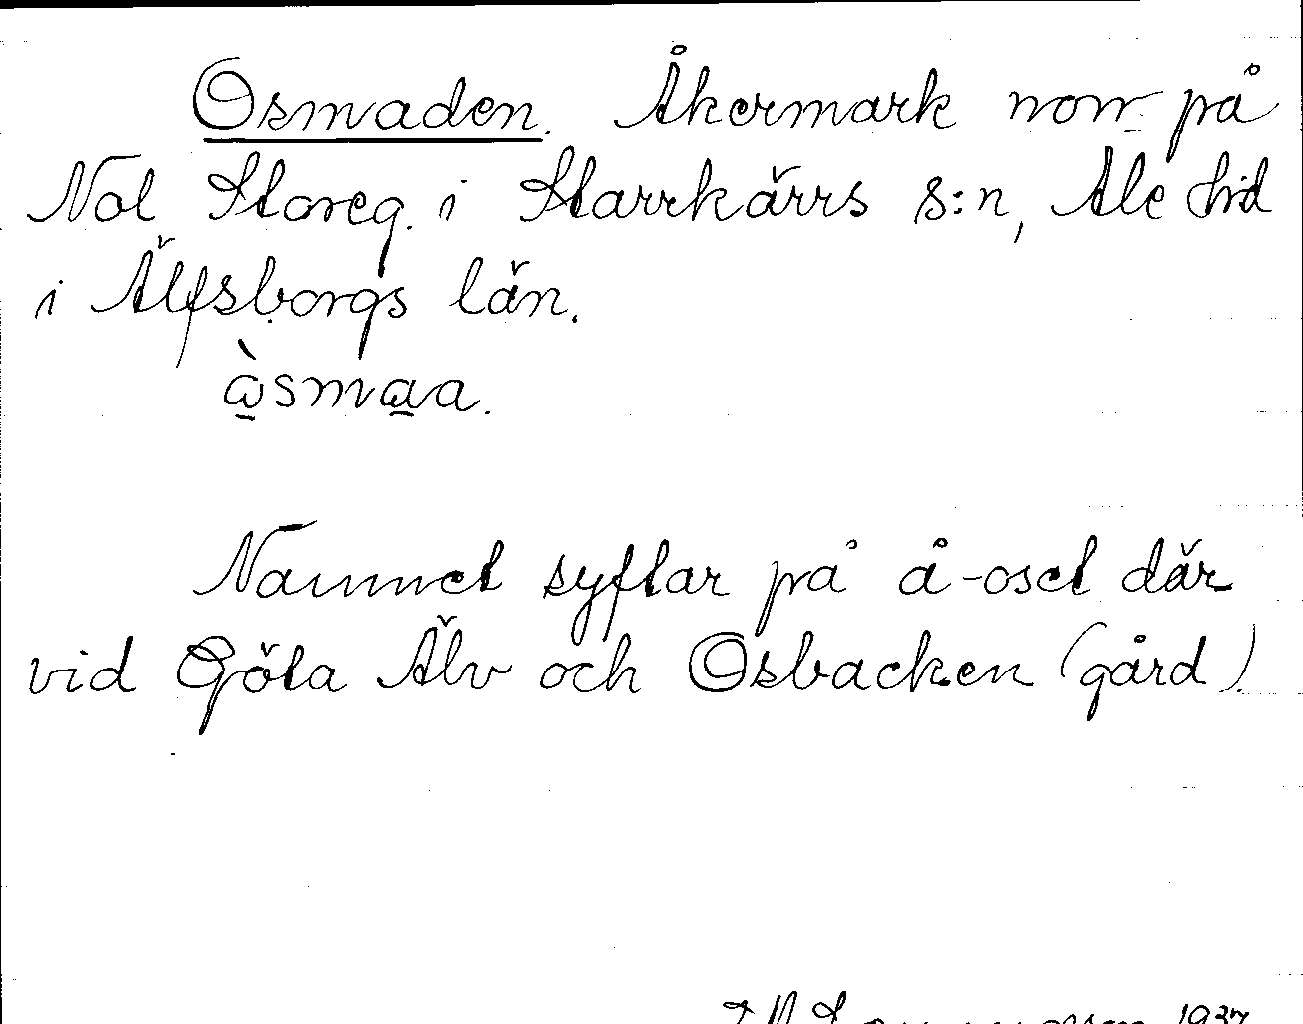 Osmaden. Åkermark norr på
Nol Storeg. i Starrkärrs s:n, Ale hd
i Älfsborgs län.
ὼ̱sma̱a.
Namnet syftar på å-oset där
vid Göta Älv och Osbacken (gård)
1937